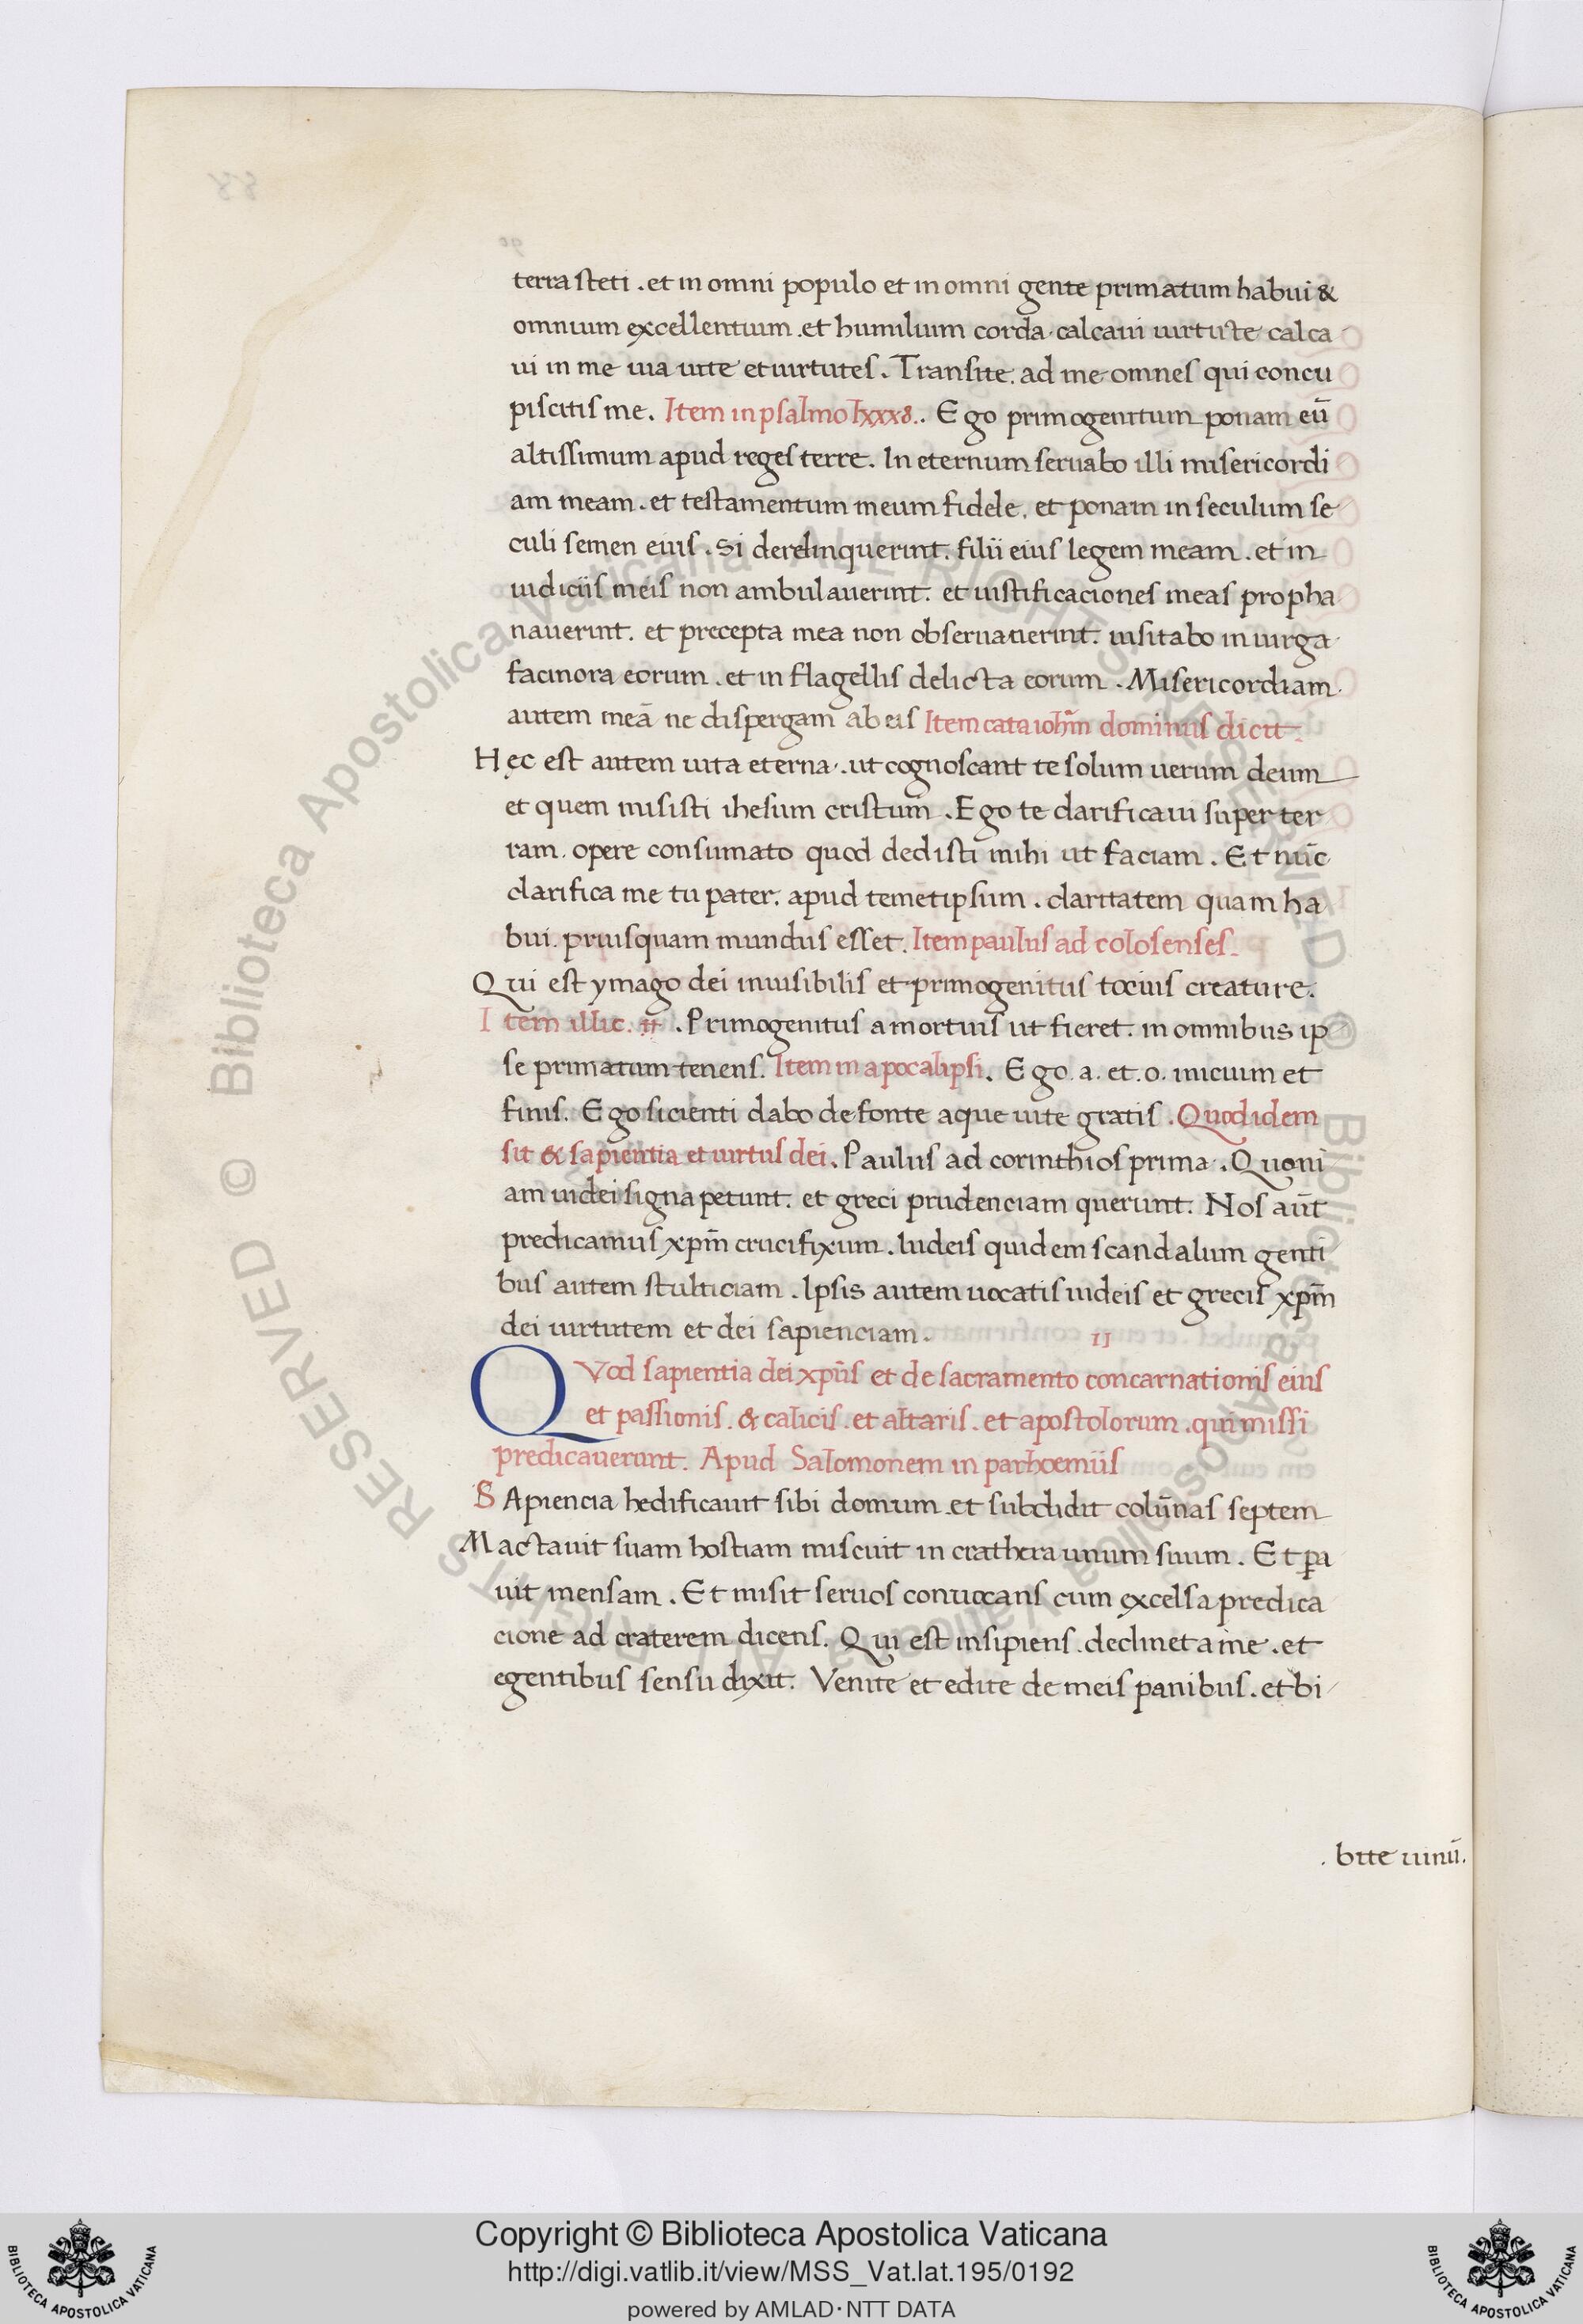 terra steti . et in omni populo et in omni gente primatum habui &
omnium excellentium . et humilium corda calcaui uirtute calca
ui in me uia uite et uirtutes . Transite . ad me omnes qui concu
piscitis me . Item in psalmo lxxx8 . . Ego primogenitum ponam eū
altissimum apud reges terre . In eternum seruabo illi misericordi
am meam . et testamentum meum fidele . et ponam in seculum se
culi semen eius . Si derelinquerint . filii eius legem meam . et in
iudiciis meis non ambulauerint . et iustificaciones meas propha
nauerint . et precepta mea non obseruauerint . uisitabo in uirga
facinora eorum . et in flagellis delicta eorum . Misericordiam
autem meā ne dispergam ab eis Item cata iohm̄ dominus dicit
Hęc est autem uita eterna . ut cognoscant te solum uerum deum
et quem misisti ihesum cristum . Ego te clarificaui super ter
ram . opere consumato quod dedisti mihi ut faciam . Et nūc
clarifica me tu pater . apud temetipsum . claritatem quam ha
bui . priusquam mundus esset . Item paulus ad colosenses
Qui est ymago dei inuisibilis et primogenitus tocius creature .
Item illic . ii . Primogenitus a mortuis ut fieret . in omnibus ip
se primatum tenens . Item in apocalipsi . Ego . a . et . o . inicium et
finis . Ego sicienti dabo de fonte aque uite gratis . Quod idem
sit & sapientia et uirtus dei . Paulus ad corinthios prima . Quoni
am iudei signa petunt . et greci prudenciam querunt . Nos aūt
predicamus xpm̄ crucifixum . Iudeis quidem scandalum genti
bus autem stulticiam . Ipsis autem uocatis iudeis et grecis xpm̄
dei uirtutem et dei sapienciam .
II
QVod sapientia dei xpūs et de sacramento concarnationis eius
et passionis . & calicis . et altaris . et apostolorum . qui missi
predicauerunt . Apud Salomonem in parhoemiis
SApiencia hedificauit sibi domum . et subdidit colūnas septem
Mactauit suam hostiam miscuit in crathera uinum suum . Et ꝑa
uit mensam . Et misit seruos conuocans cum excelsa predica
cione ad craterem dicens . Qui est insipiens . declinet a me . et
egentibus sensu dixit . Venite et edite de meis panibus . et bi
. bite uinū .
Copyright © Biblioteca Apostolica Vaticana
http://digi.vatlib.it/view/MSS_Vat.lat.195/0192
powered by AMLAD·NTT DATA
BIBLIOTECA APOSTOLICA VATICANA
BIBLIOTECA APOSTOLICA VATICANA